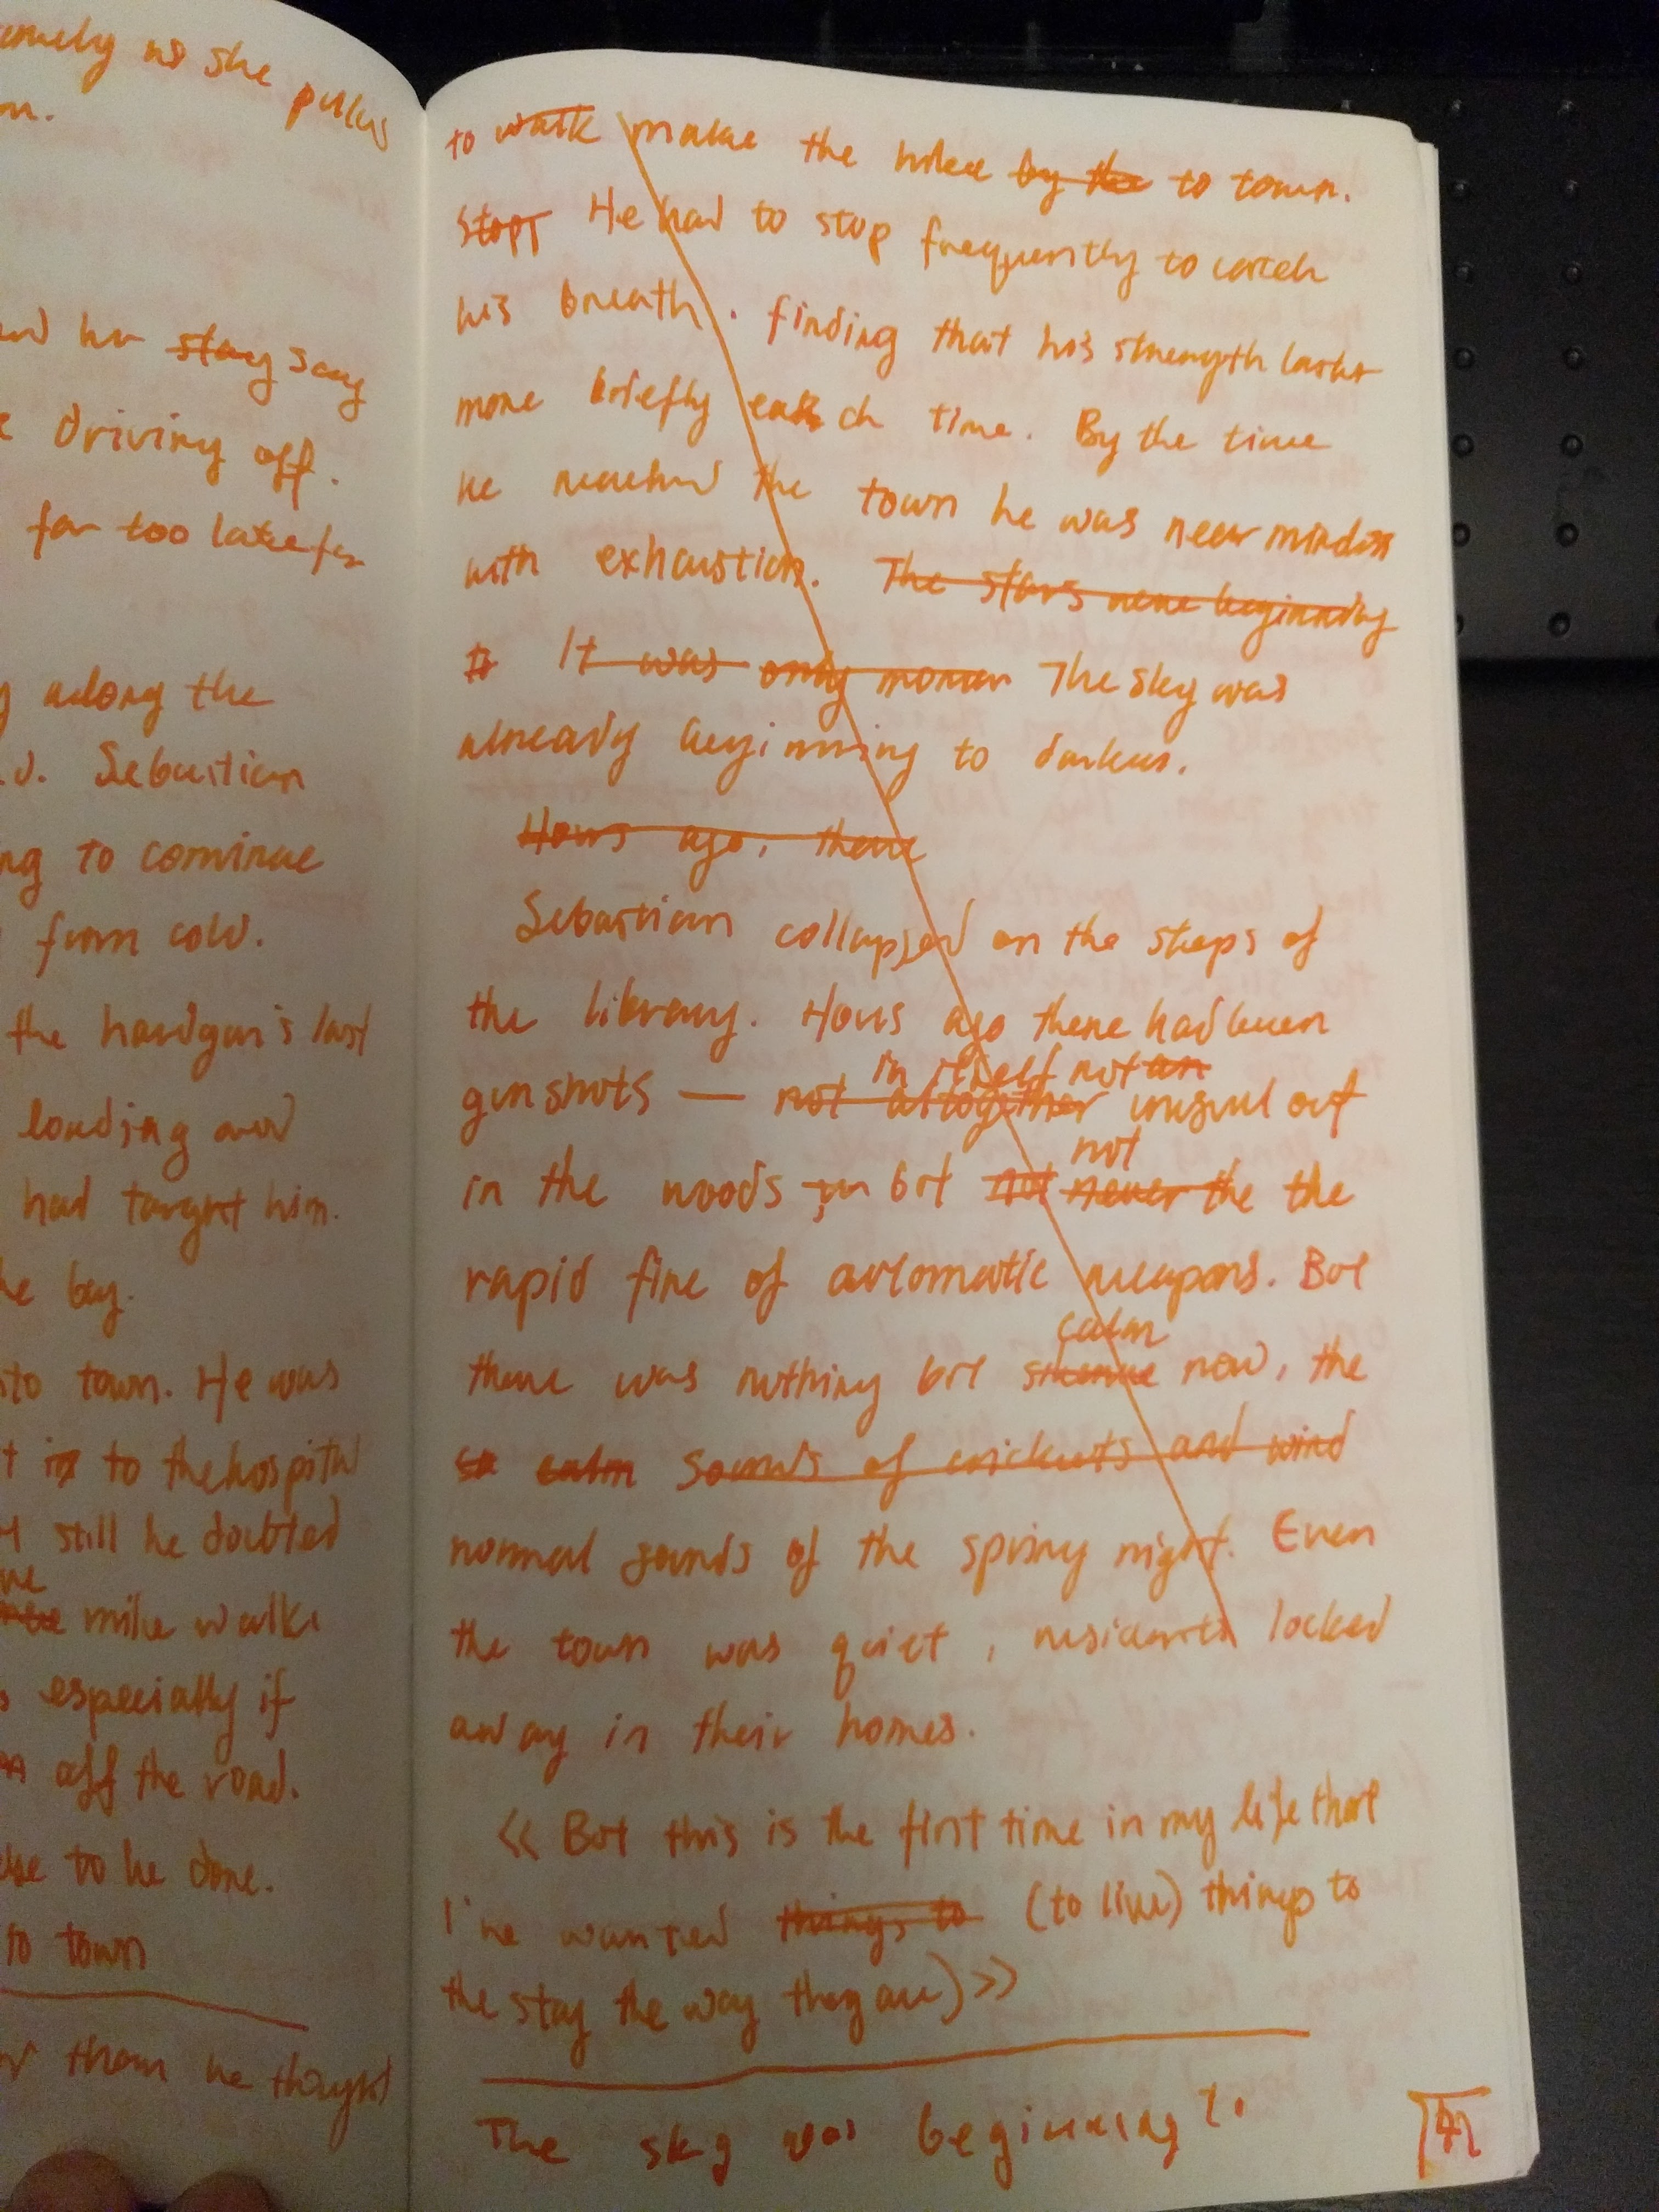 as she pulls
on.
her stay say
driving off.
far too late for
along the
Sebastian
to continue
from cold.
the handgun's last
loading and
had taught him.
bag.
to town. He was
to the hospital
still he doubted
mile walk
especially if
off the road.
to be done.
to town
them he thought
to walk make the hike by the to town.
Stopt He had to stop frequently to catch
his breath. finding that his strength lasts
more briefly each time. By the time
he reached the town he was near mindless
with exhaustion. The stars were beginning
It was only The sky was
already beginning to darken.
Hours ago, there
Sebastian collapsed on the steps of
the library. Hours ago there had been
in itself not an
gunshots — not altogether unusual out
not
in the woods but not never the the
rapid fire of automatic weapons. But
calm
there was nothing but silence now, the
calm Sounds of crickets and wind
normal sounds of the spring night. Even
the town was quiet, residents locked
away in their homes.
<< But this is the first time in my life that
I've wanted things to (to live) things to
the stay the way they are) >>
The sky was beginning to